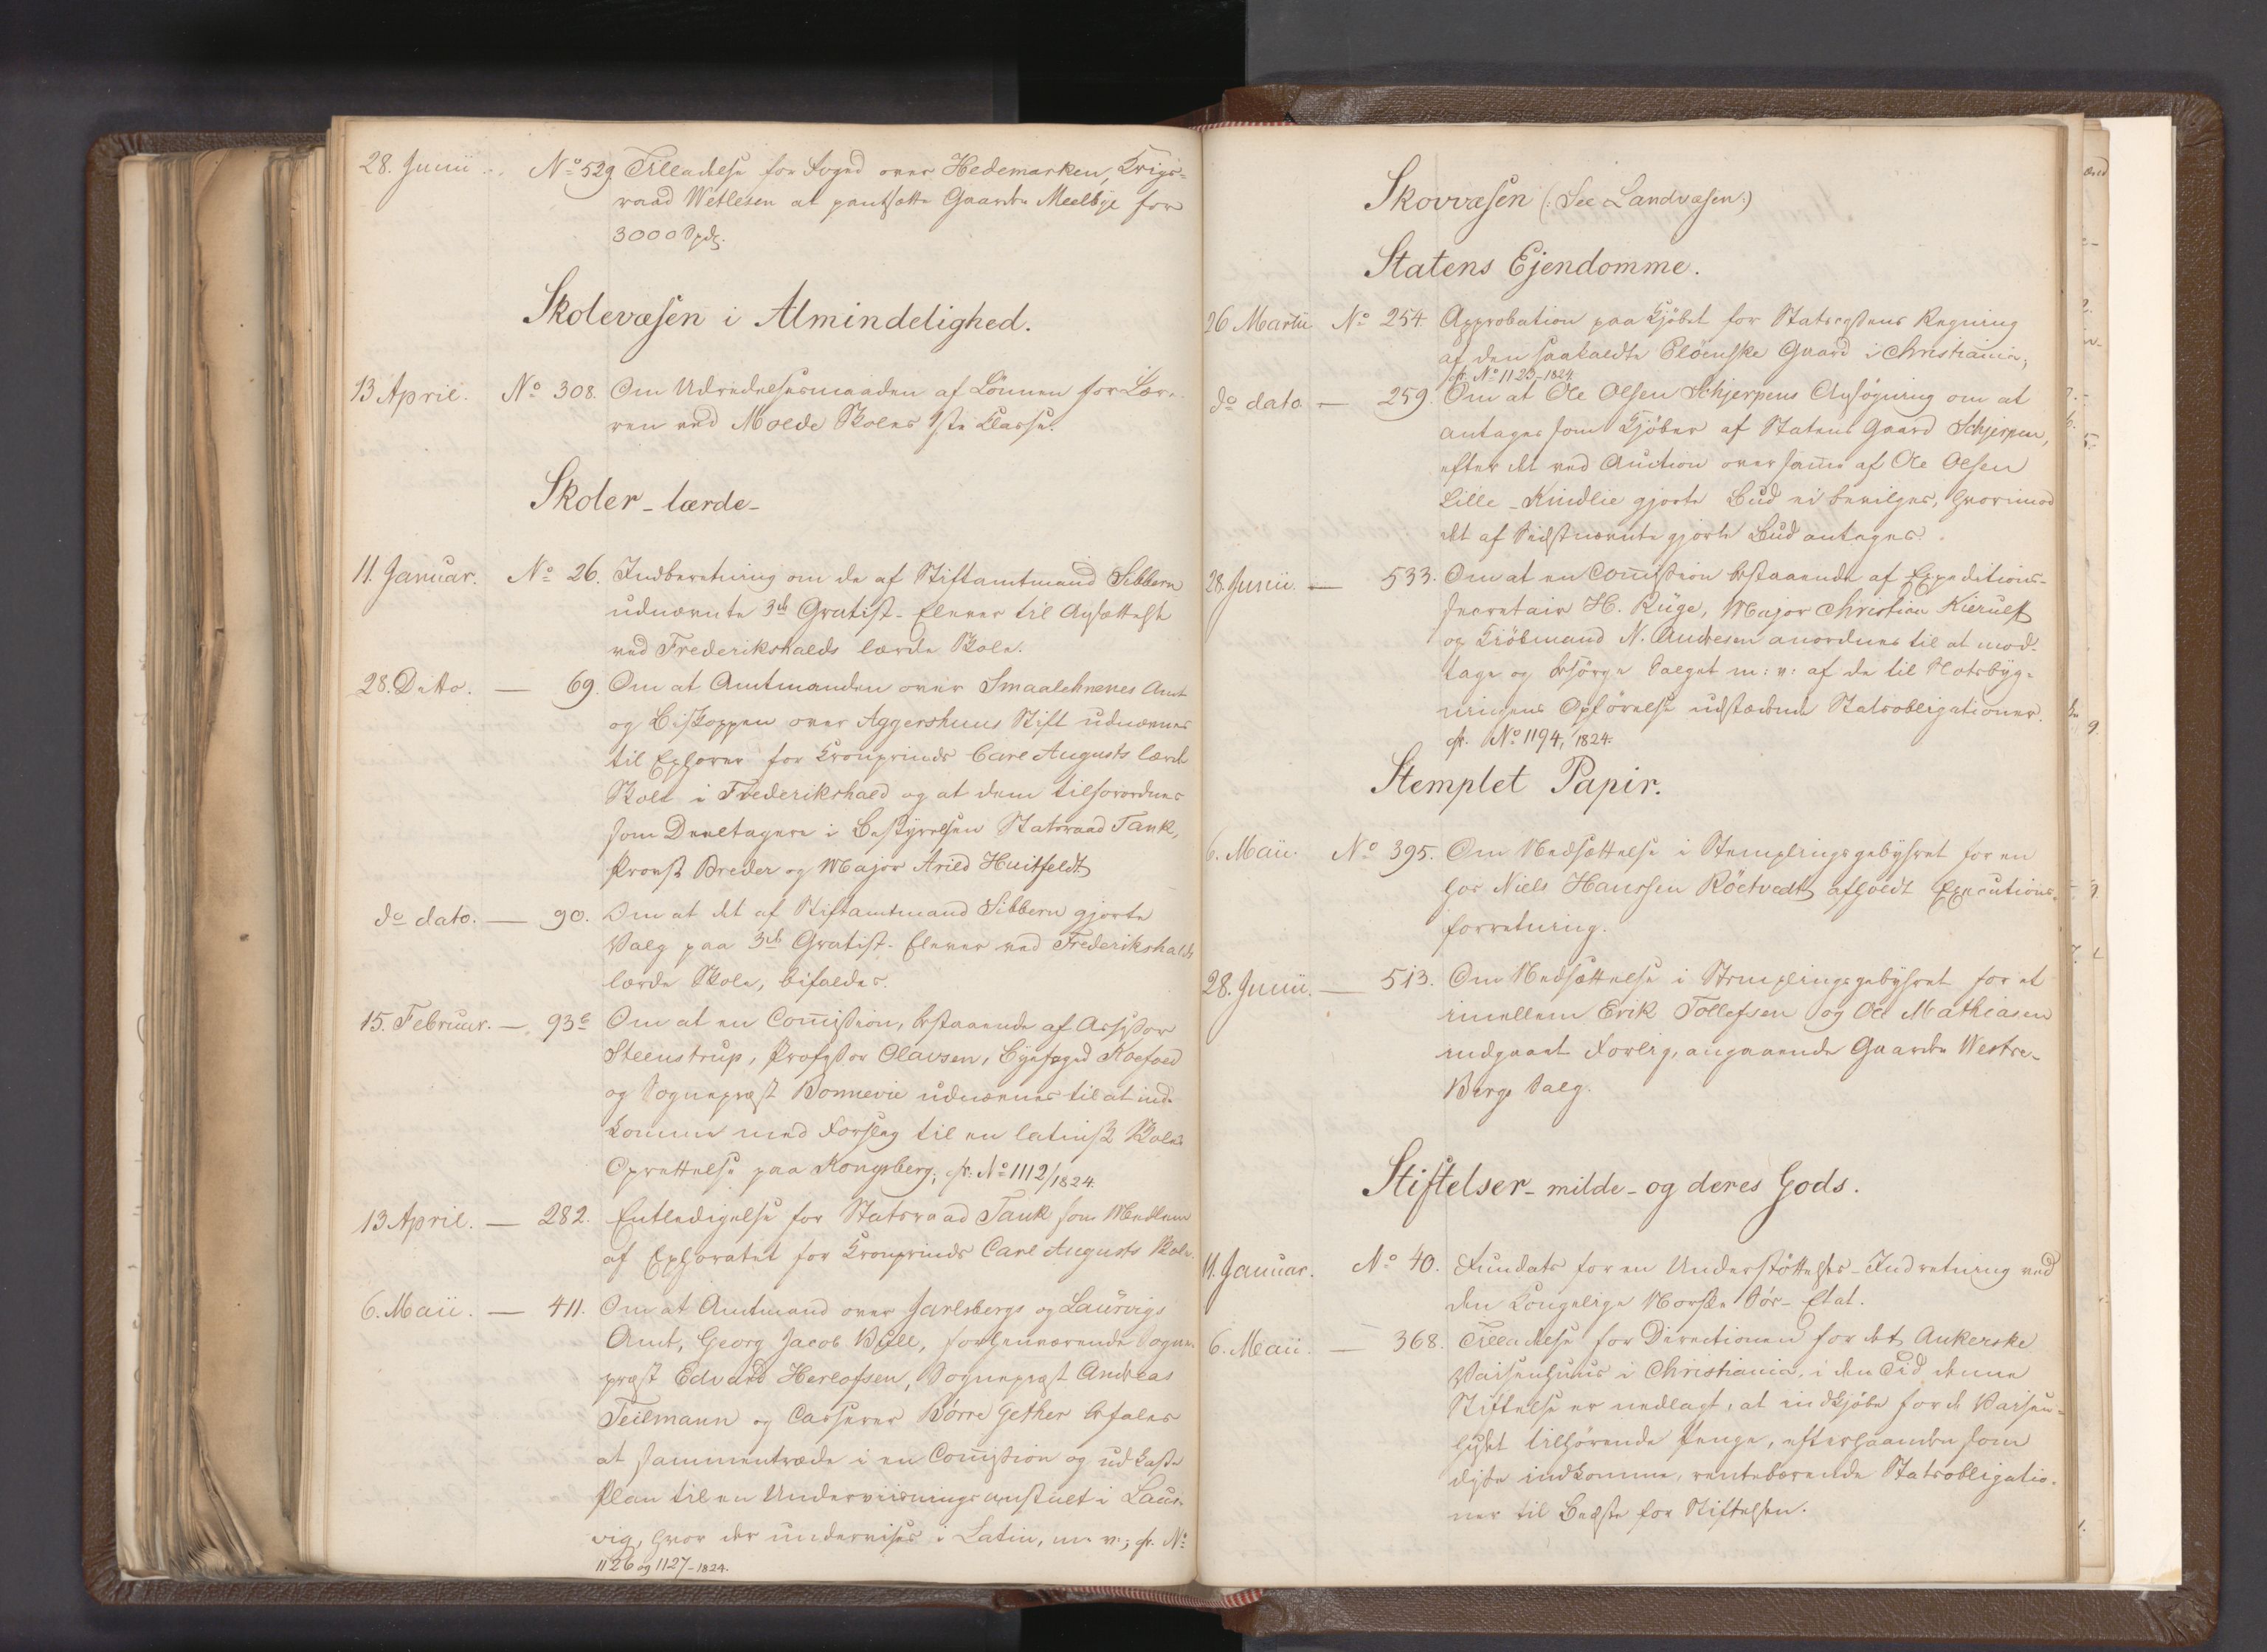 28. Junii .. No 529 Tilladelse for Foged over Hedemarken, Krigs-
raad Wetlesen at pantsætte Gaarden Meelbye for
3000 Spd.
Skolevæsen i Almindelighed.
13 April. No 308. Om Udredelsesmaaden af Lönnen for Lære-
ren ved Molde Skoles 1ste Classe.
Skoler - lærde -
11. Januar. No 26. Indberetning om de af Stiftamtmand Sibbern
udnævnte 3de Gratist-Elever til Ansættelse
ved Frederikshalds lærde Skole.
28. Ditto. — 69. Om at Amtmanden over Smaalehnenes Amt
og Biskoppen over Aggershuus Stift udnævnes
til Ephorer for Kronprinds Carl Augusts lærde
Skole i Frederikshald og at dem tilforordnes
som Deeltagere i Bestyrelsen Statsraad Tank,
Provst Breder og Major Arild Huitfeldt
do dato. — 90. Om at det af Stiftamtmand Sibbern gjorte
Valg paa 3de Gratist-Elever ved Frederikshalds
lærde Skole, bifaldes.
15. Februar. — 93b Om at en Commission, bestaaende af Assessor
Steenstrup, Professor Olavsen, Byefoged Koefoed
og Sognepræst Bonnevie udnævnes til at ind-
komme med Forslag til en latinsk Skoles
Oprettelse paa Kongsberg; cfr. No 1112/1824.
13 April. — 282. Entledigelse for Statsraad Tank som Medlem
af Ephoratet for Kronprinds Carl Augusts Skole.
6. Maii. — 411. Om at Amtmand over Jarlsbergs og Laurvigs
Amt, Georg Jacob Bull, forhenværende Sogne-
præst Edvard Herlofsen, Sognepræst Andreas
Teilmann og Casserer Börre Gether befales
at sammentræde i en Commission og udkaste
Plan til en Underviisningsanstalt i Laur-
vig, hvor der undervises i Latin, m. v.; cfr. No
1126 og 1127 - 1824.
Skovvæsen (: See Landvæsen:)
Statens Ejendomme.
26 Martii No 254 Approbation paa Kjöbet for Statscassens Regning
af den saakaldte Plöenske Gaard i Christiania;
cfr. No 1123 - 1824.
do dato. — 259. Om at Ole Olsen Schjerpens Ansögning om at
antages som Kjöber af Statens Gaard Schjerpen,
efter det ved Auction over samme af Ole Olsen
Lille-Kindlie gjorte Bud ei bevilges, hvorimod
det af Sidstnævnte gjorte Bud antages.
28. Junii. — 533. Om at en Commission bestaaende af Expeditions-
secretair H. Rüge, Major Christian Kierulf
og Kiöbmand N. Andresen anordnes til at mod-
tage og besörge Salget m: v: af de til Slotsbyg-
ningens Opförelse udstædende Statsobligationer.
cfr. No 1194, 1824.
Stemplet Papir.
6. Maii. No 395. Om Nedsættelse i Stemplingsgebyhret for en
hos Niels Hanssen Röetvedt afholdt Executions-
forretning.
28. Junii. — 513. Om Nedsættelse i Stemplingsgebyhret for et
imellem Erik Tollefsen og Ole Mathiasen
indgaaet Forlig, angaaende Gaarden Westre-
Bergs Salg.
Stiftelser - milde - og deres Gods.
11. Januar. No 40. Fundats for en Understöttelses-Indretning ved
den Kongelige Norske Sör-Etat.
6. Maii. — 368. Tilladelse for Directionen for det Ankerske
Vaisenhuus i Christiania, i den Tid denne
Stiftelse er nedlagt, at indkjöbe for de Vaisen-
huset tilhörende Penge, efterhaanden som
disse indkomme, rentebærende Statsobligatio-
ner til Bedste for Stiftelsen.